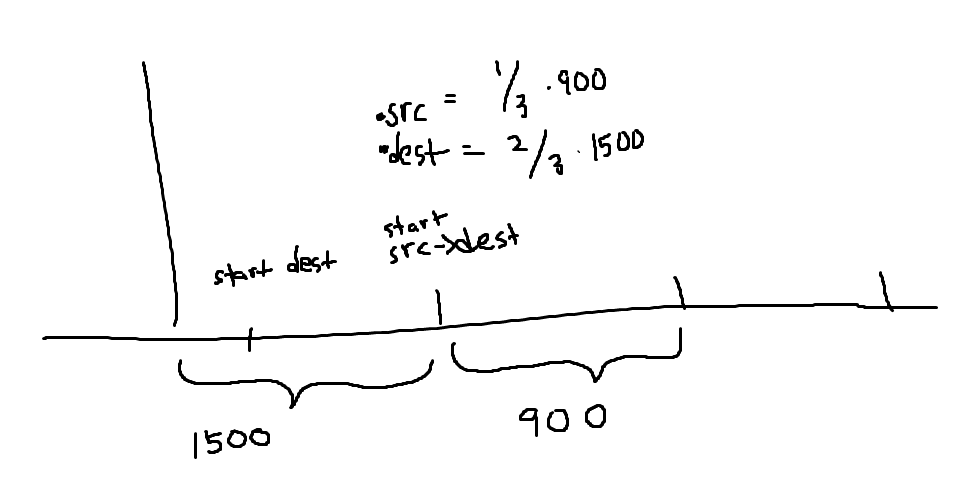 •src = 1/3 · 900
•dest = 2/3 · 1500
start
src->dest
start dest
1500
900